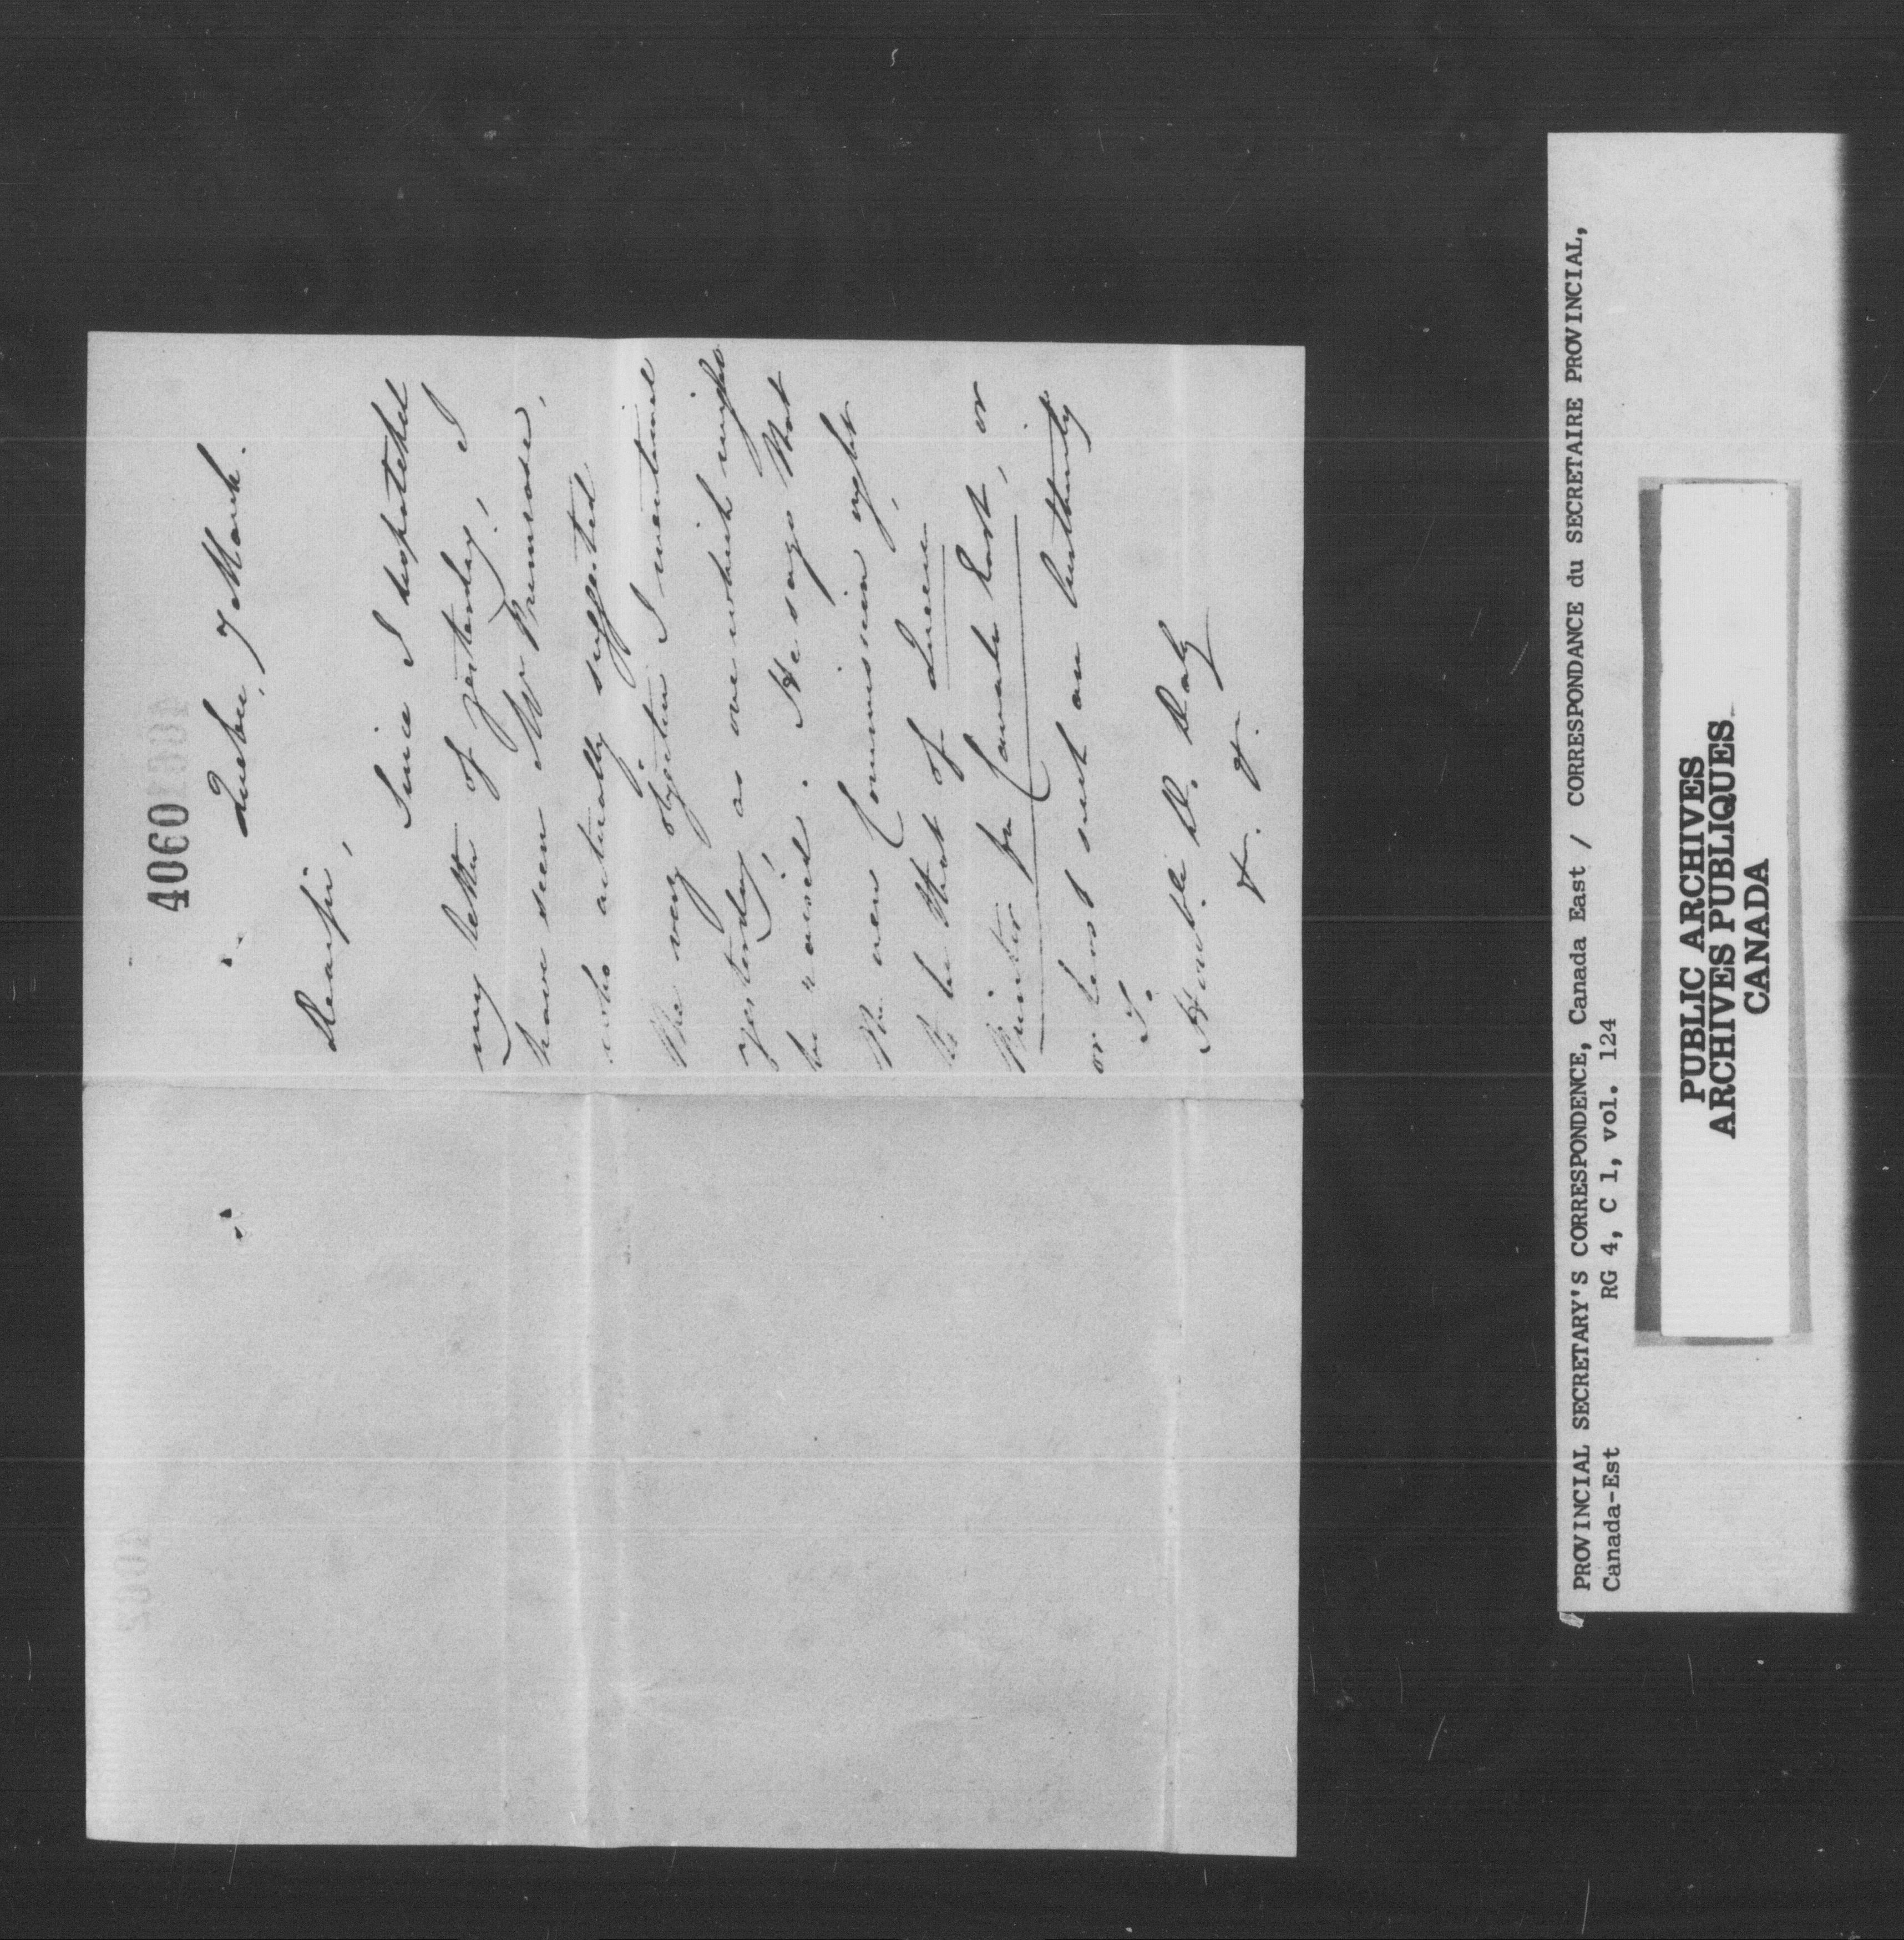 4060
Quebec, 7 March.
Dear Sir,
Since I despatched
my letter of yesterday, I
have seen Mr Primrose,
who actually suggested
the very objection I mentioned
yesterday, as one which might
be raised. He says that
the new Commission ought
to be that of Queen's
Printer for Canada East, or
or least such an Authority
T.
Honble D. Daly
&. &.
PROVINCIAL SECRETARY'S CORRESPONDENCE, Canada East / CORRESPONDANCE du SECRETAIRE PROVINCIAL,
Canada-Est RG 4, C 1, vol. 124
PUBLIC ARCHIVES
ARCHIVES PUBLIQUES
CANADA